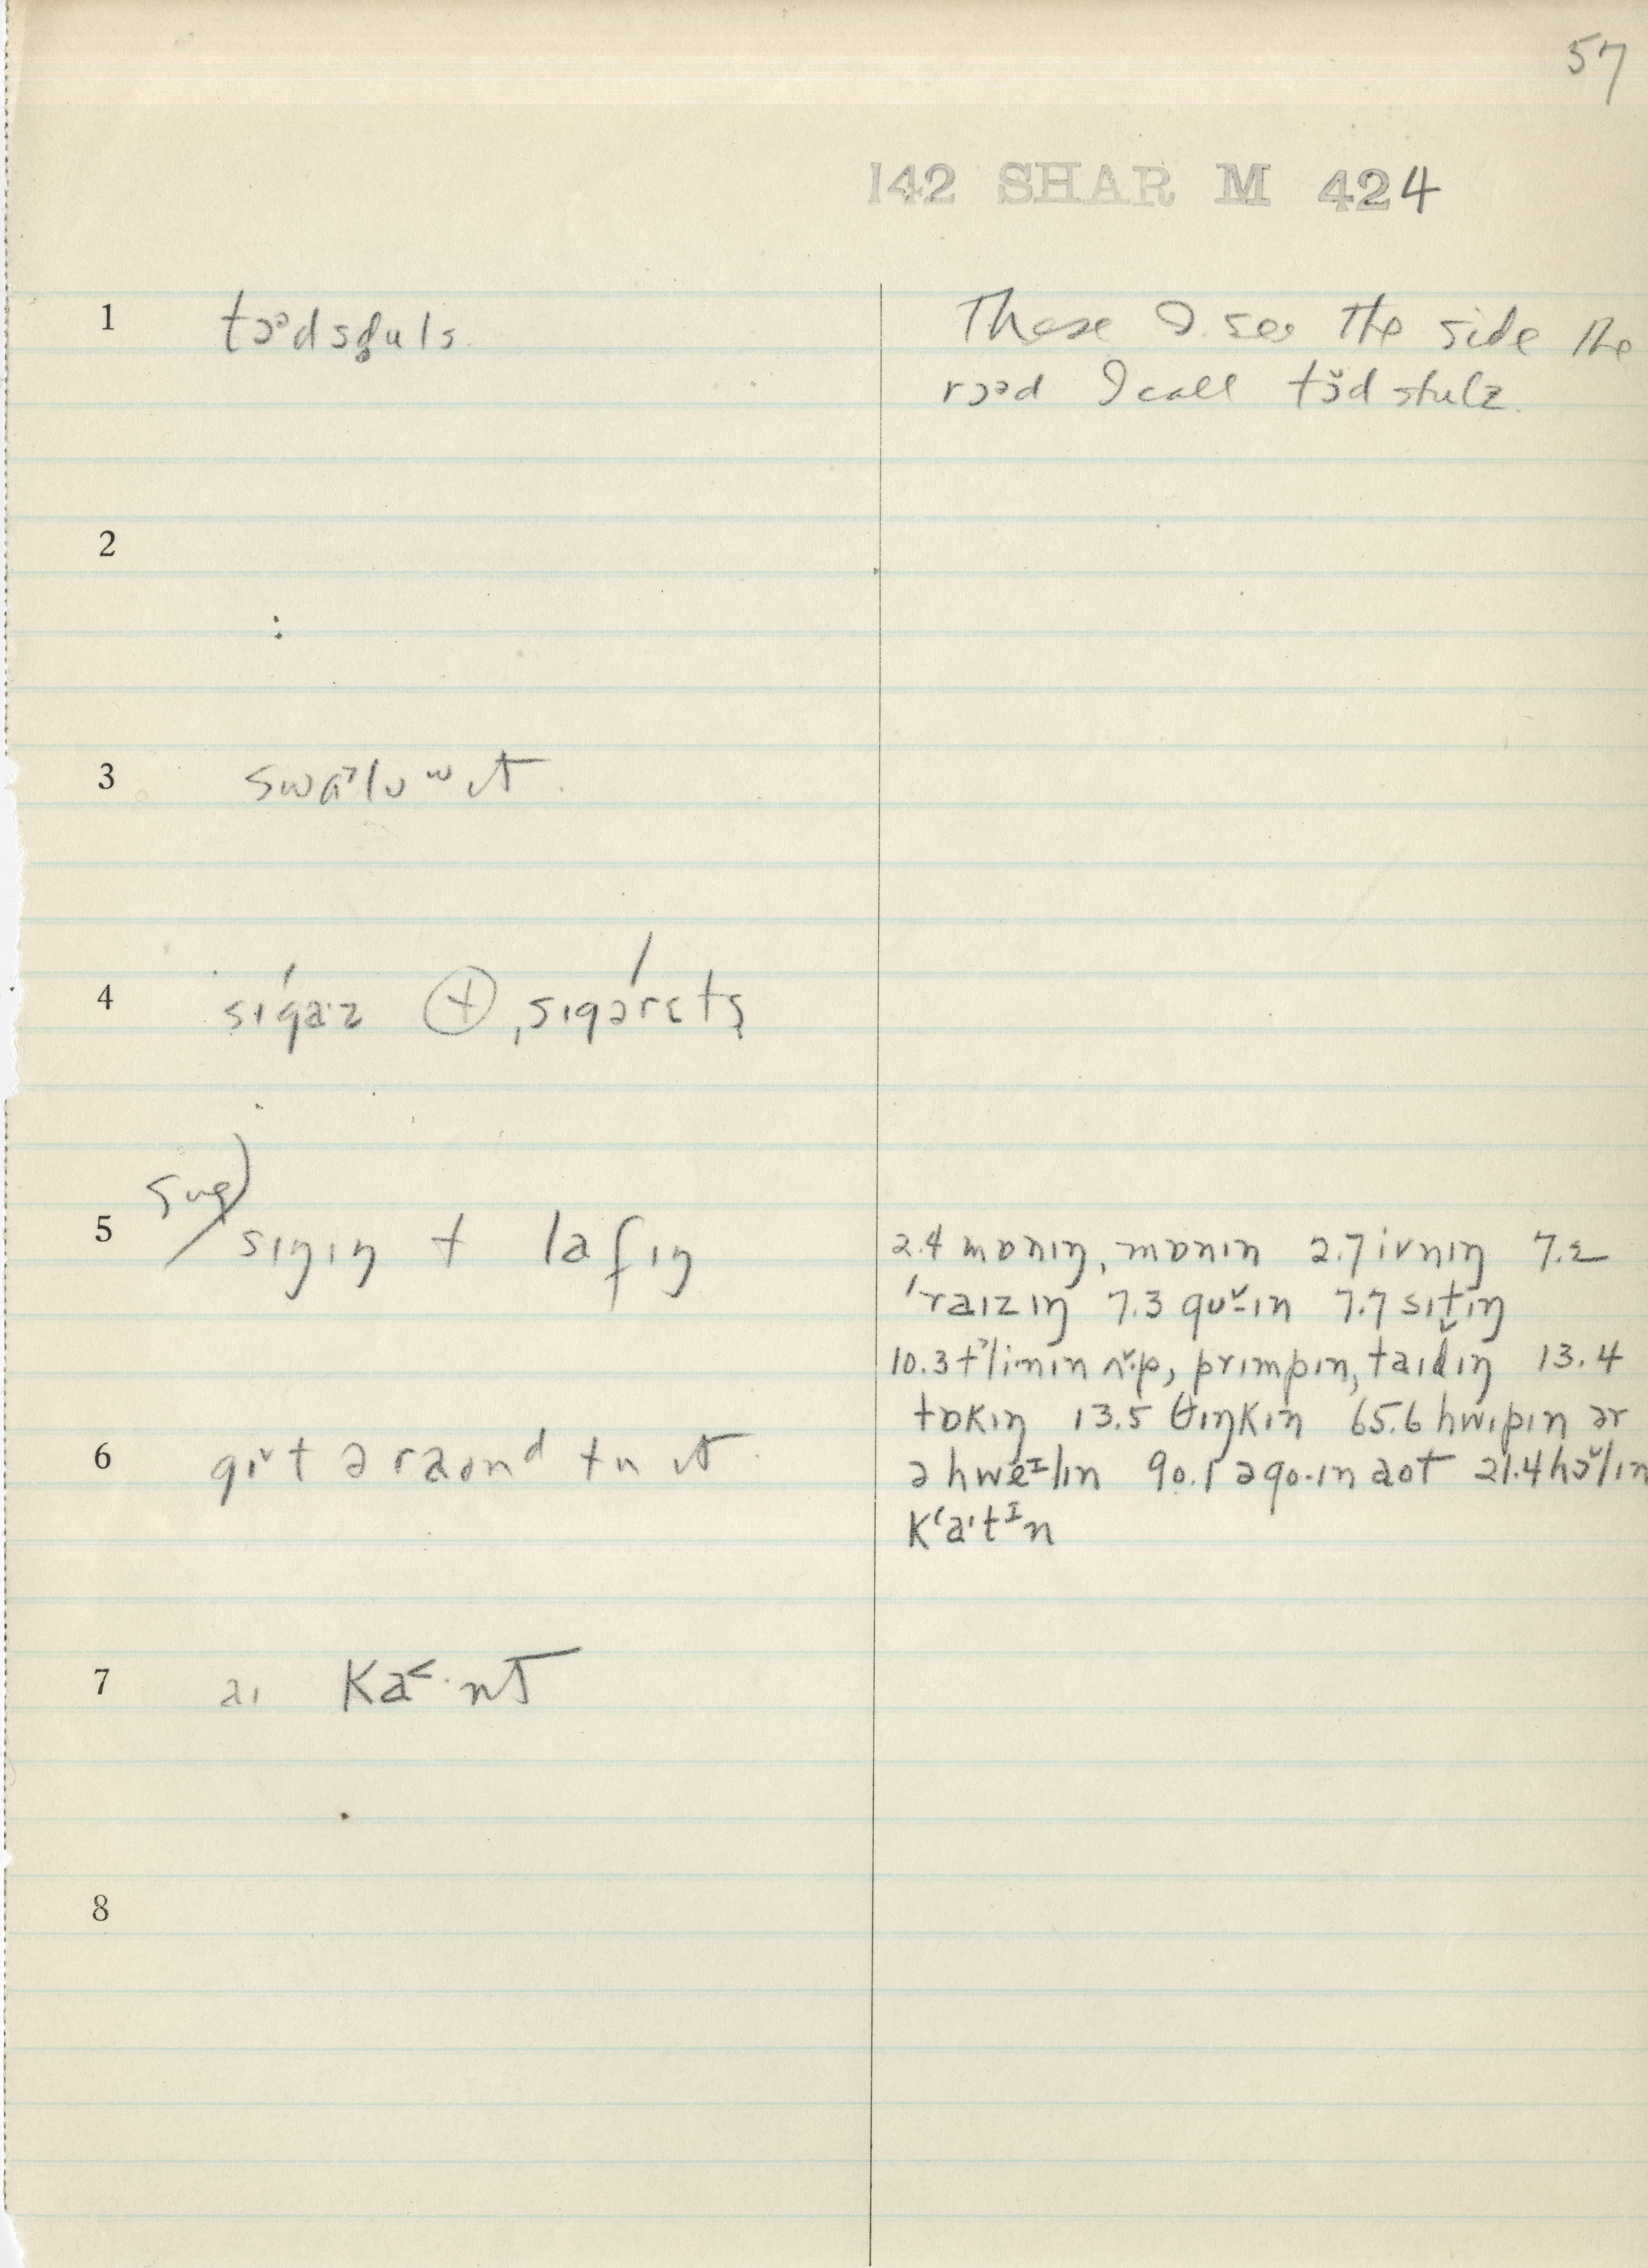 57
142 SHAR M 424
1 tɔᵊdsduls.
These I see the side the
rɔᵊd I call tɔ̆d stulz.
2
:
3 swɑ˃luʷɪt
4 sɪ́gaːz ⊕, sɪgərɛ́ts
sug)
5 sɪŋɪŋ + lafɪŋ
2.4 mɒnɪŋ, mɒnɪn 2.7 ivnɪŋ 7.2
ˈraɪzɪŋ 7.3 gʊ˅-ɪn 7.7 sɪt̬ɪŋ
10.3 t˃limɪn ʌ˅p, prɪmpɪn, taɪdɪŋ 13.4
tɒkɪŋ 13.5 θɪŋkɪn 65.6 hwɪpɪn ər
ə hweᶦlɪn 90.1 əgo·ɪn aʊt 21.4 hɔ˅lɪn
kʻa·tᶦn
6 gɪ˅t əraʊnᵈ tu ɪt.
7 aɪ ka˂·nt
8